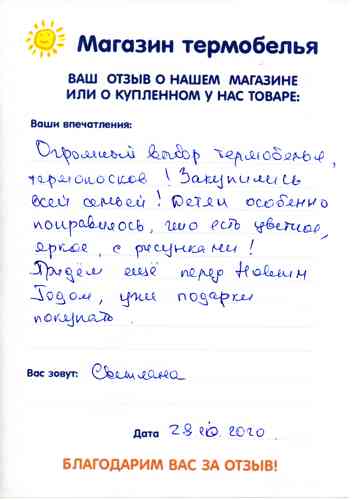 Магазин термобелья
ВАШ ОТЗЫВ О НАШЕМ МАГАЗИНЕ
ИЛИ О КУПЛЕННОМ У НАС ТОВАРЕ:
Ваши впечатления:
Огромный выбор термобелья,
термоносков! Закупились
всей семьёй! Детям особенно
понравилось, что есть цветное,
яркое, с рисунками!
Придём ещё перед Новым
Годом, уже подарки
покупать.
Вас зовут: Светлана
Дата 28 10. 2020
БЛАГОДАРИМ ВАС ЗА ОТЗЫВ!